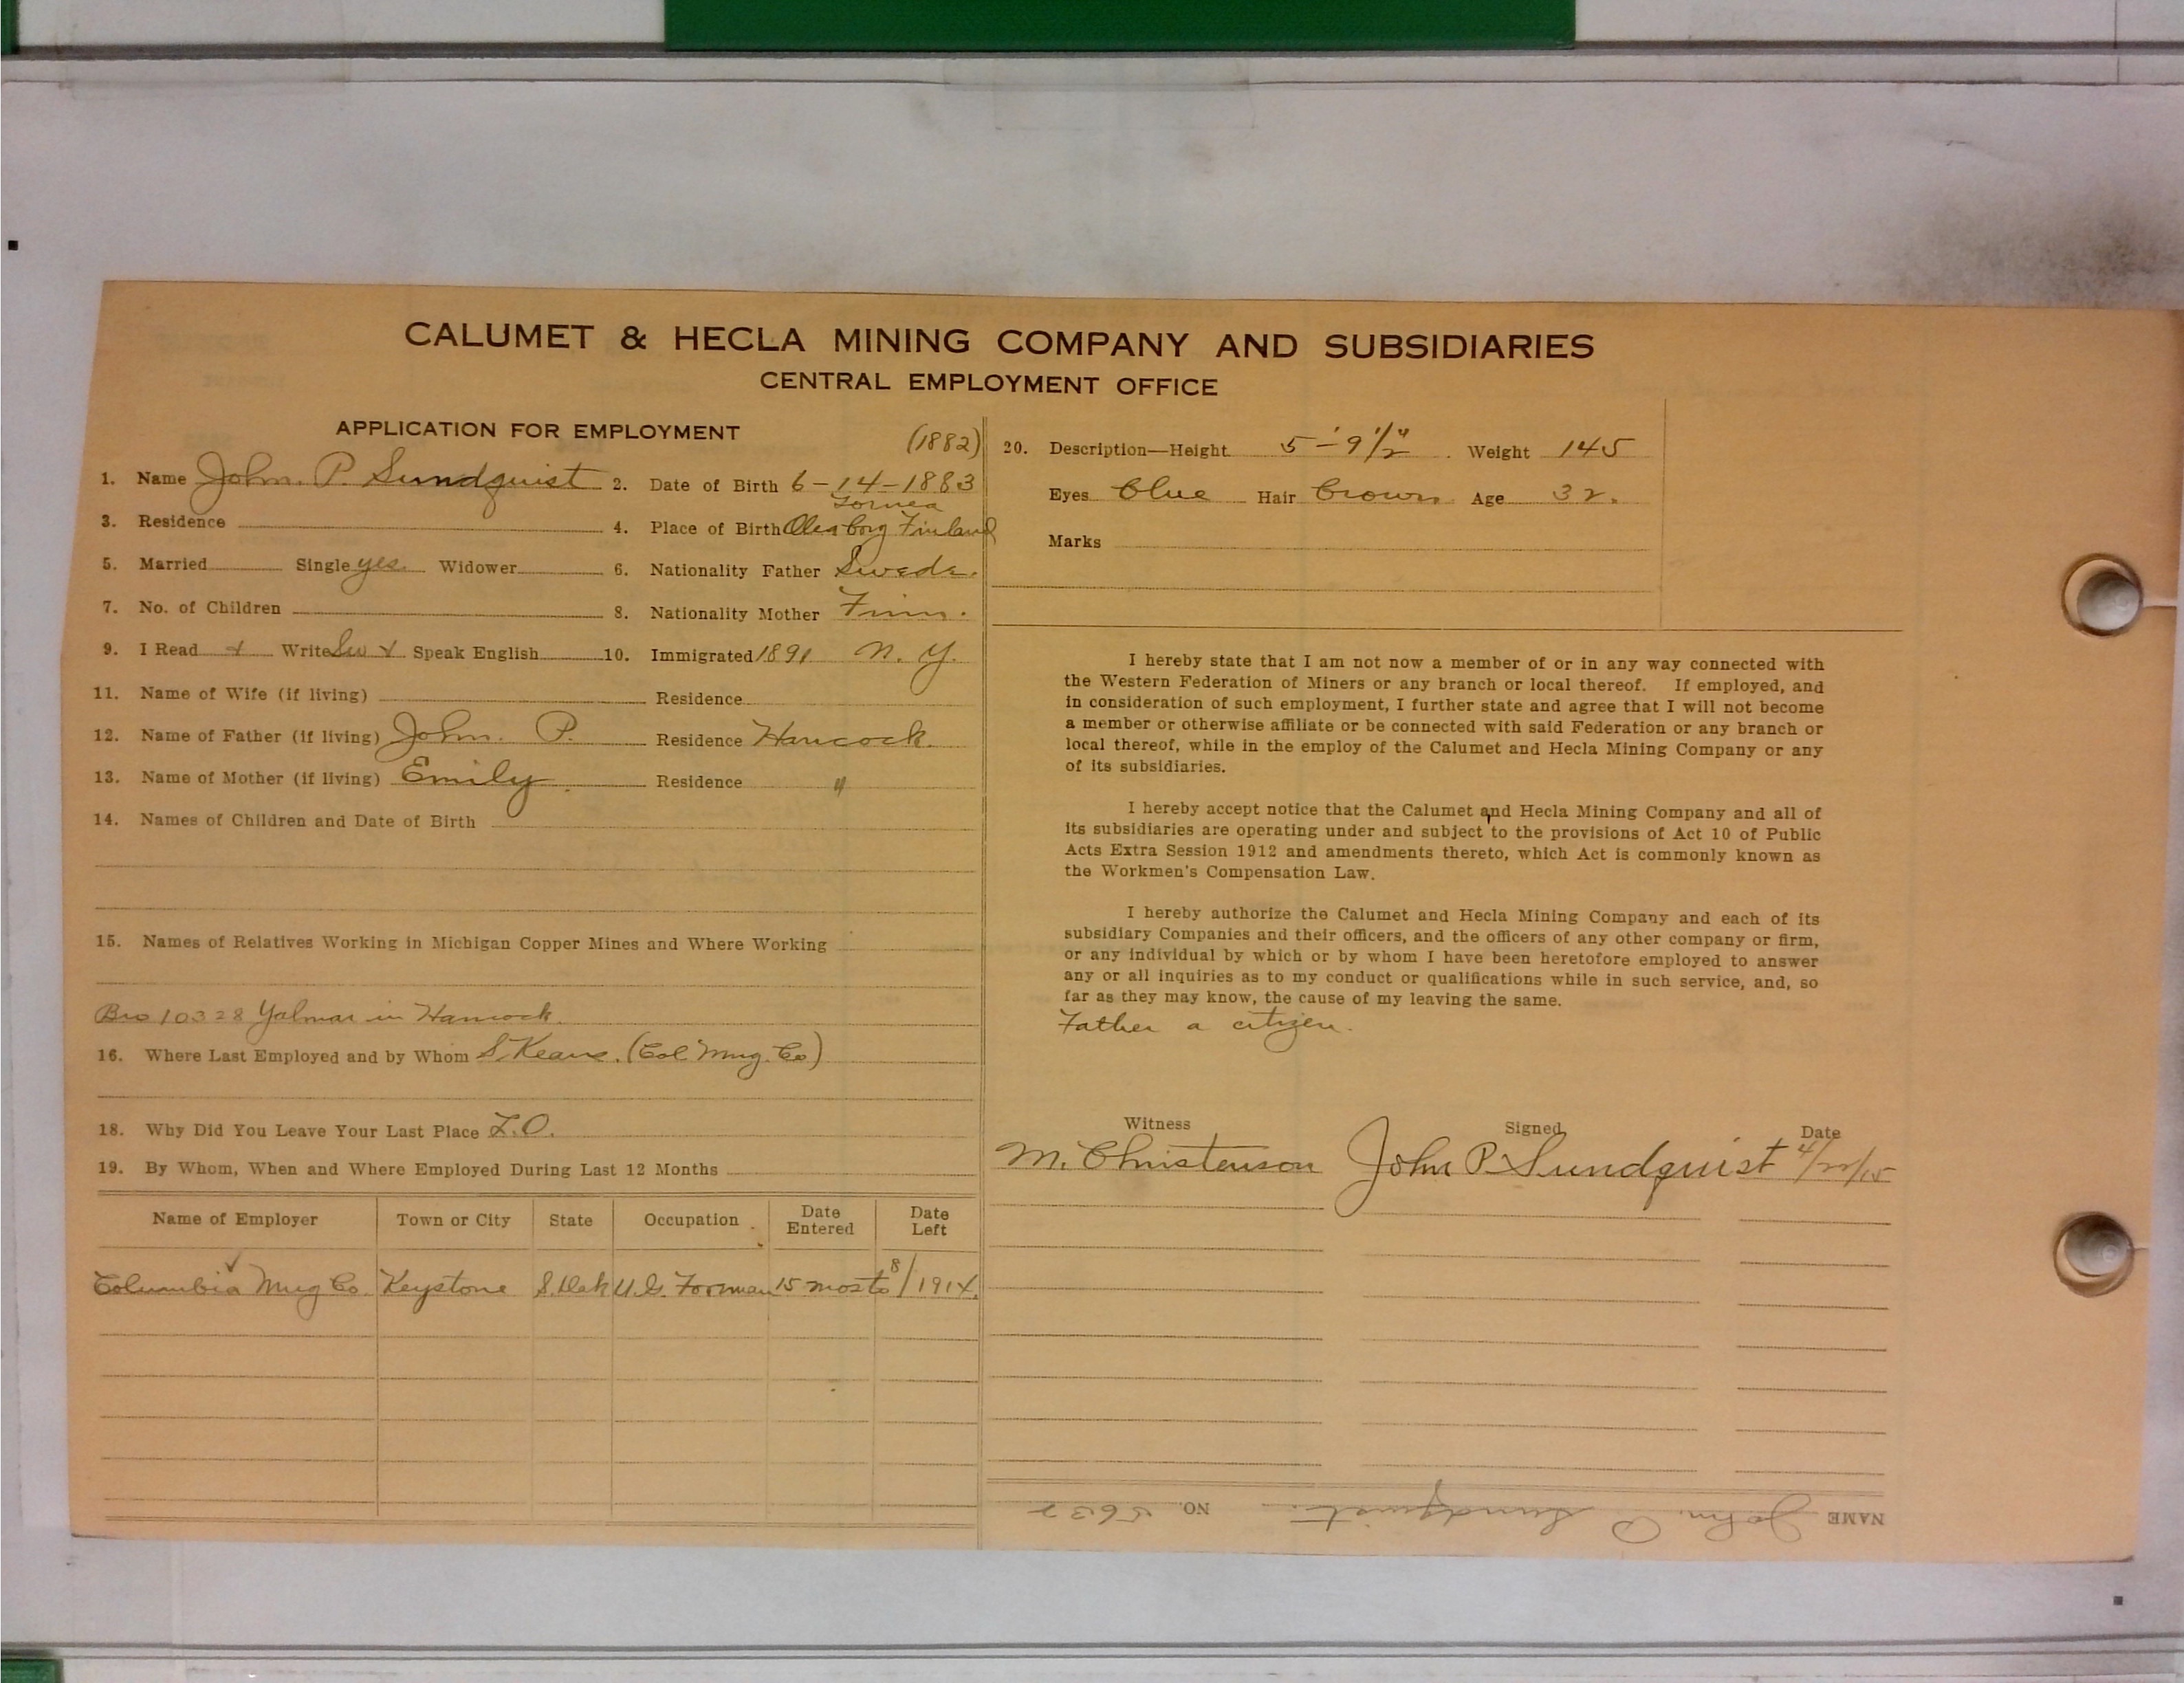 CALUMET & HECLA MINING COMPANY AND SUBSIDIARIES
CENTRAL EMPLOYMENT OFFICE
APPLICATION FOR EMPLOYMENT
(1882)
1. Name John. P. Sundquist 2. Date of Birth 6-14-1883
Tornea
3. Residence 4. Place of Birth Finland
5. Married Single yes. Widower 6. Nationality Father Swede.
7. No. of Children 8. Nationality Mother Finn.
9. I Read Write Sw Speak English 10. Immigrated 1891 N. Y.
11. Name of Wife (if living) Residence
12. Name of Father (if living) John. P. Residence Hancock.
13. Name of Mother (if living) Emily Residence "
14. Names of Children and Date of Birth
15. Names of Relatives Working in Michigan Copper Mines and Where Working
Bro 10328 Yalmar in Hancock.
16. Where Last Employed and by Whom (Col Mng. Co)
18. Why Did You Leave Your Last Place L.O.
19. By Whom, When and Where Employed During Last 12 Months
Name of Employer Town or City State Occupation Date Entered Date Left
Columbia Mng Co. Keystone S. Dak U.G. Forman 15 mos to 8/1914.
20. Description—Height 5'-9 1/2" Weight 145
Eyes blue Hair brown Age 32.
Marks
I hereby state that I am not now a member of or in any way connected with
the Western Federation of Miners or any branch or local thereof. If employed, and
in consideration of such employment, I further state and agree that I will not become
a member or otherwise affiliate or be connected with said Federation or any branch or
local thereof, while in the employ of the Calumet and Hecla Mining Company or any
of its subsidiaries.
I hereby accept notice that the Calumet and Hecla Mining Company and all of
its subsidiaries are operating under and subject to the provisions of Act 10 of Public
Acts Extra Session 1912 and amendments thereto, which Act is commonly known as
the Workmen's Compensation Law.
I hereby authorize the Calumet and Hecla Mining Company and each of its
subsidiary Companies and their officers, and the officers of any other company or firm,
or any individual by which or by whom I have been heretofore employed to answer
any or all inquiries as to my conduct or qualifications while in such service, and, so
far as they may know, the cause of my leaving the same.
Father a citizen.
Witness Signed Date
M. Christenson John P. Sundquist 4/22/15
NAME John. P Sundquist. NO. 5632